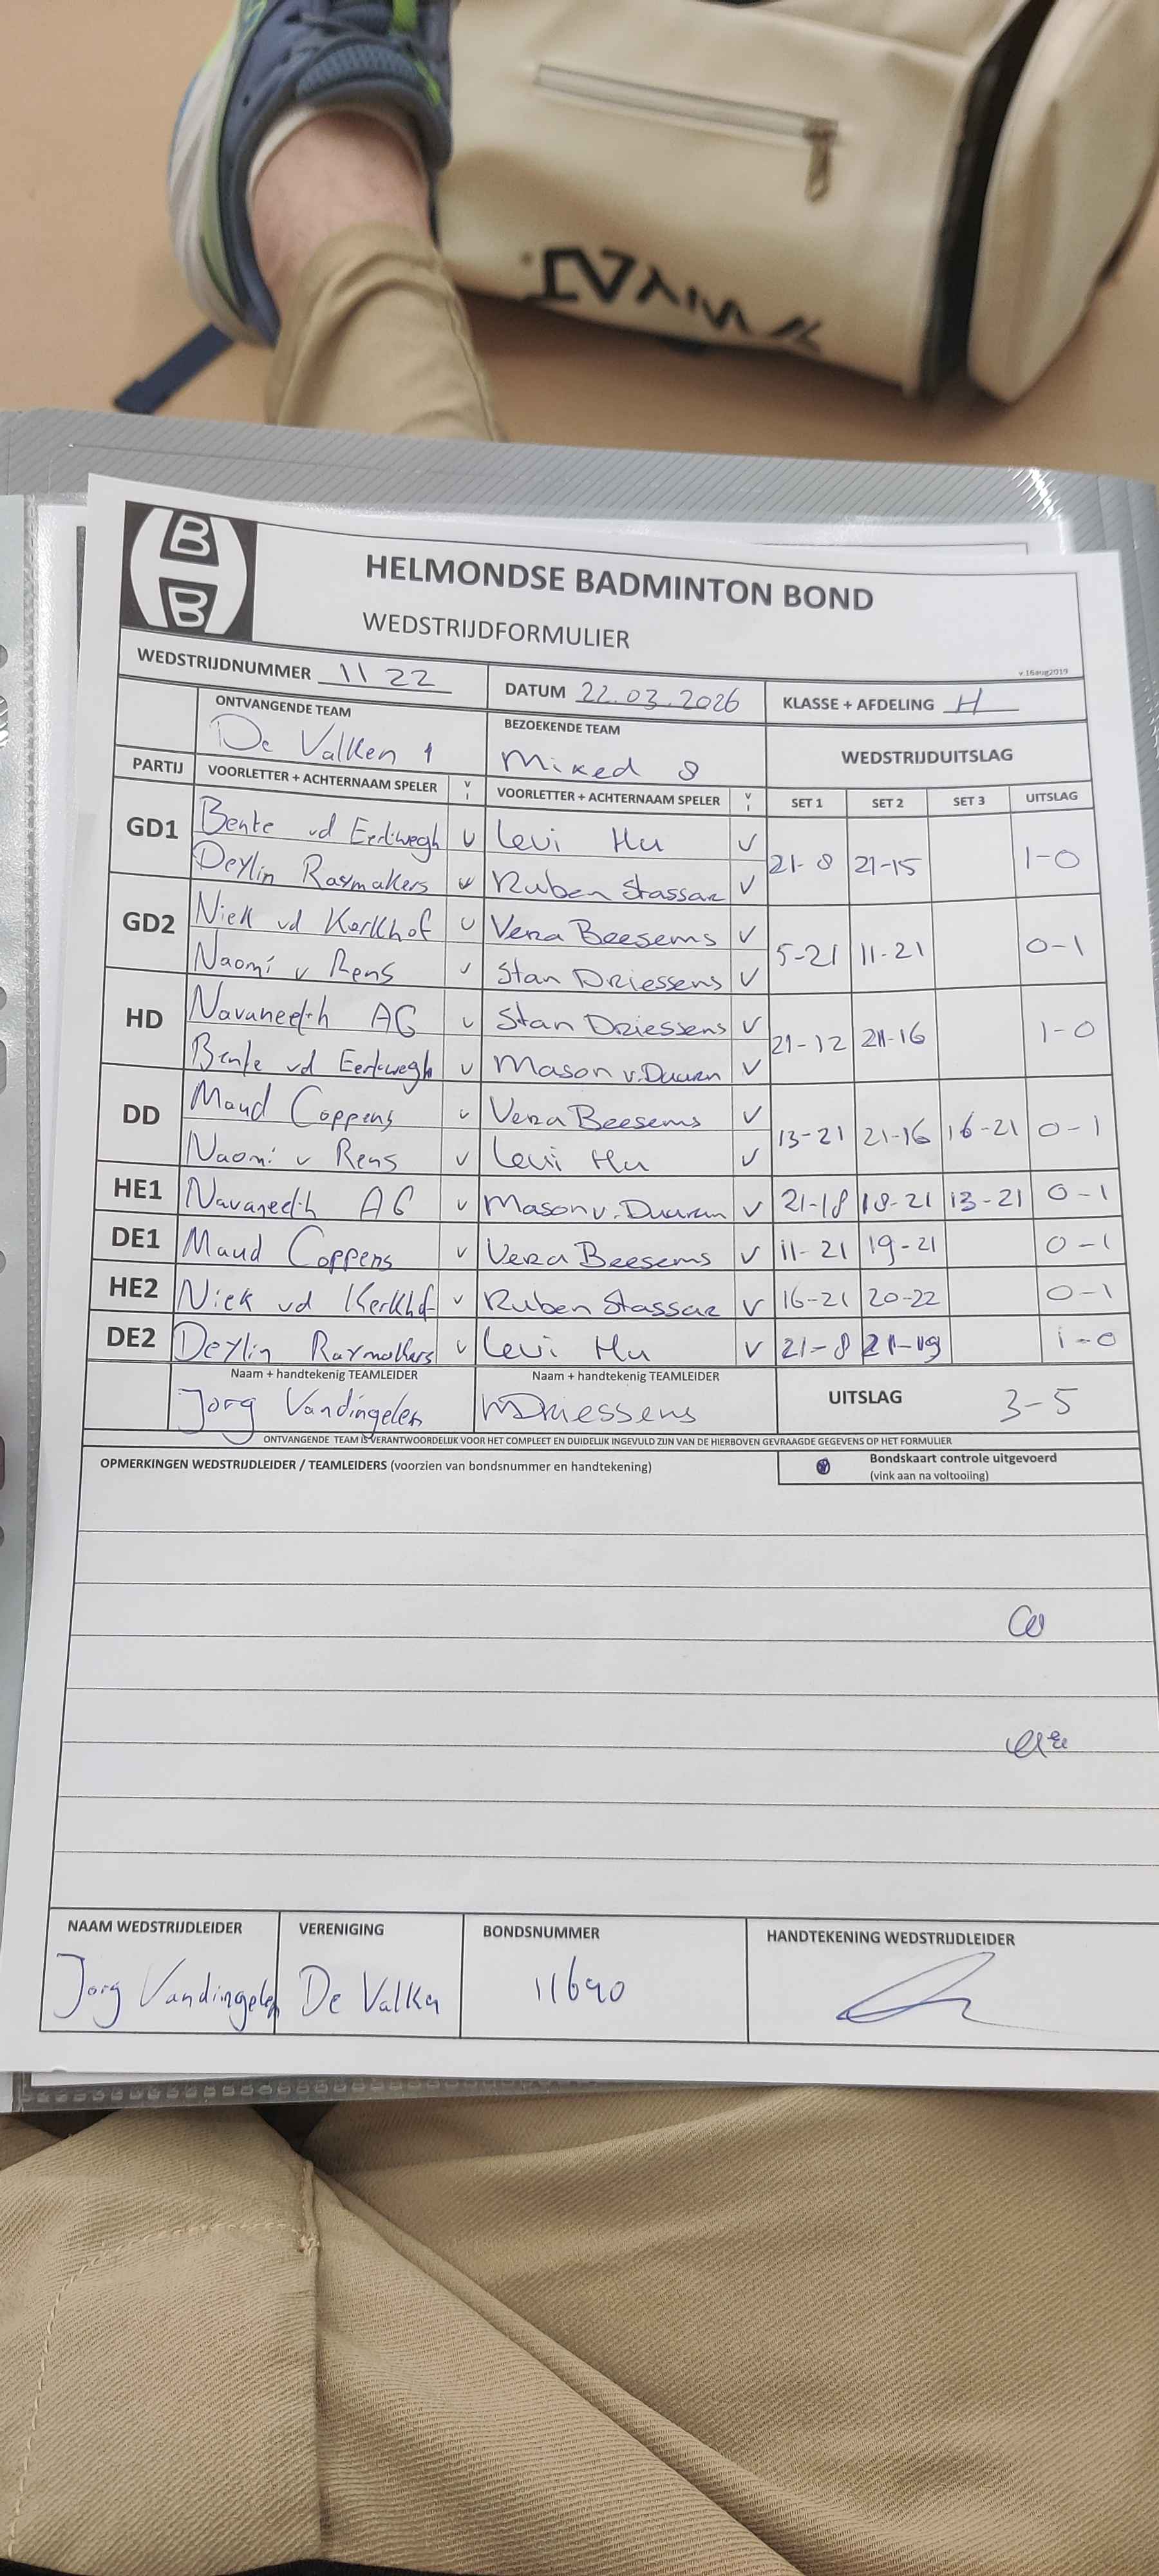 B
B
HELMONDSE BADMINTON BOND
WEDSTRIJDFORMULIER
v.16aug2019
WEDSTRIJDNUMMER 1122
DATUM 22.03.2026
KLASSE + AFDELING H
ONTVANGENDE TEAM
De Valken 1
BEZOEKENDE TEAM
Mixed 8
WEDSTRIJDUITSLAG
PARTIJ VOORLETTER + ACHTERNAAM SPELER V I VOORLETTER + ACHTERNAAM SPELER V I SET 1 SET 2 SET 3 UITSLAG
GD1 Bente vd Eerdwegh v Levi Hu v 21-8 21-15 1-0
Deylin Raymakers v Ruben Stassar v
GD2 Niek vd Kerkhof v Vera Beesems v 5-21 11-21 0-1
Naomi v Rens v Stan Driessens v
HD Navaneeth AG v Stan Driessens v 21-12 21-16 1-0
Bente vd Eerdwegh v Mason v. Duuren v
DD Maud Coppens v Vera Beesems v 13-21 21-16 16-21 0-1
Naomi v Rens v Levi Hu v
HE1 Navaneeth AG v Mason v. Duuren v 21-18 18-21 13-21 0-1
DE1 Maud Coppens v Vera Beesems v 11-21 19-21 0-1
HE2 Niek vd Kerkhof v Ruben Stassar v 16-21 20-22 0-1
DE2 Deylin Raymakers v Levi Hu v 21-8 21-19 1-0
Naam + handtekenig TEAMLEIDER
Jorg Vandingelen
Naam + handtekenig TEAMLEIDER
Driessens
UITSLAG 3-5
ONTVANGENDE TEAM IS VERANTWOORDELIJK VOOR HET COMPLEET EN DUIDELIJK INGEVULD ZIJN VAN DE HIERBOVEN GEVRAAGDE GEGEVENS OP HET FORMULIER
OPMERKINGEN WEDSTRIJDLEIDER / TEAMLEIDERS (voorzien van bondsnummer en handtekening)
Bondskaart controle uitgevoerd
(vink aan na voltooiing)
NAAM WEDSTRIJDLEIDER
Jorg Vandingelen
VERENIGING
De Valken
BONDSNUMMER
11690
HANDTEKENING WEDSTRIJDLEIDER